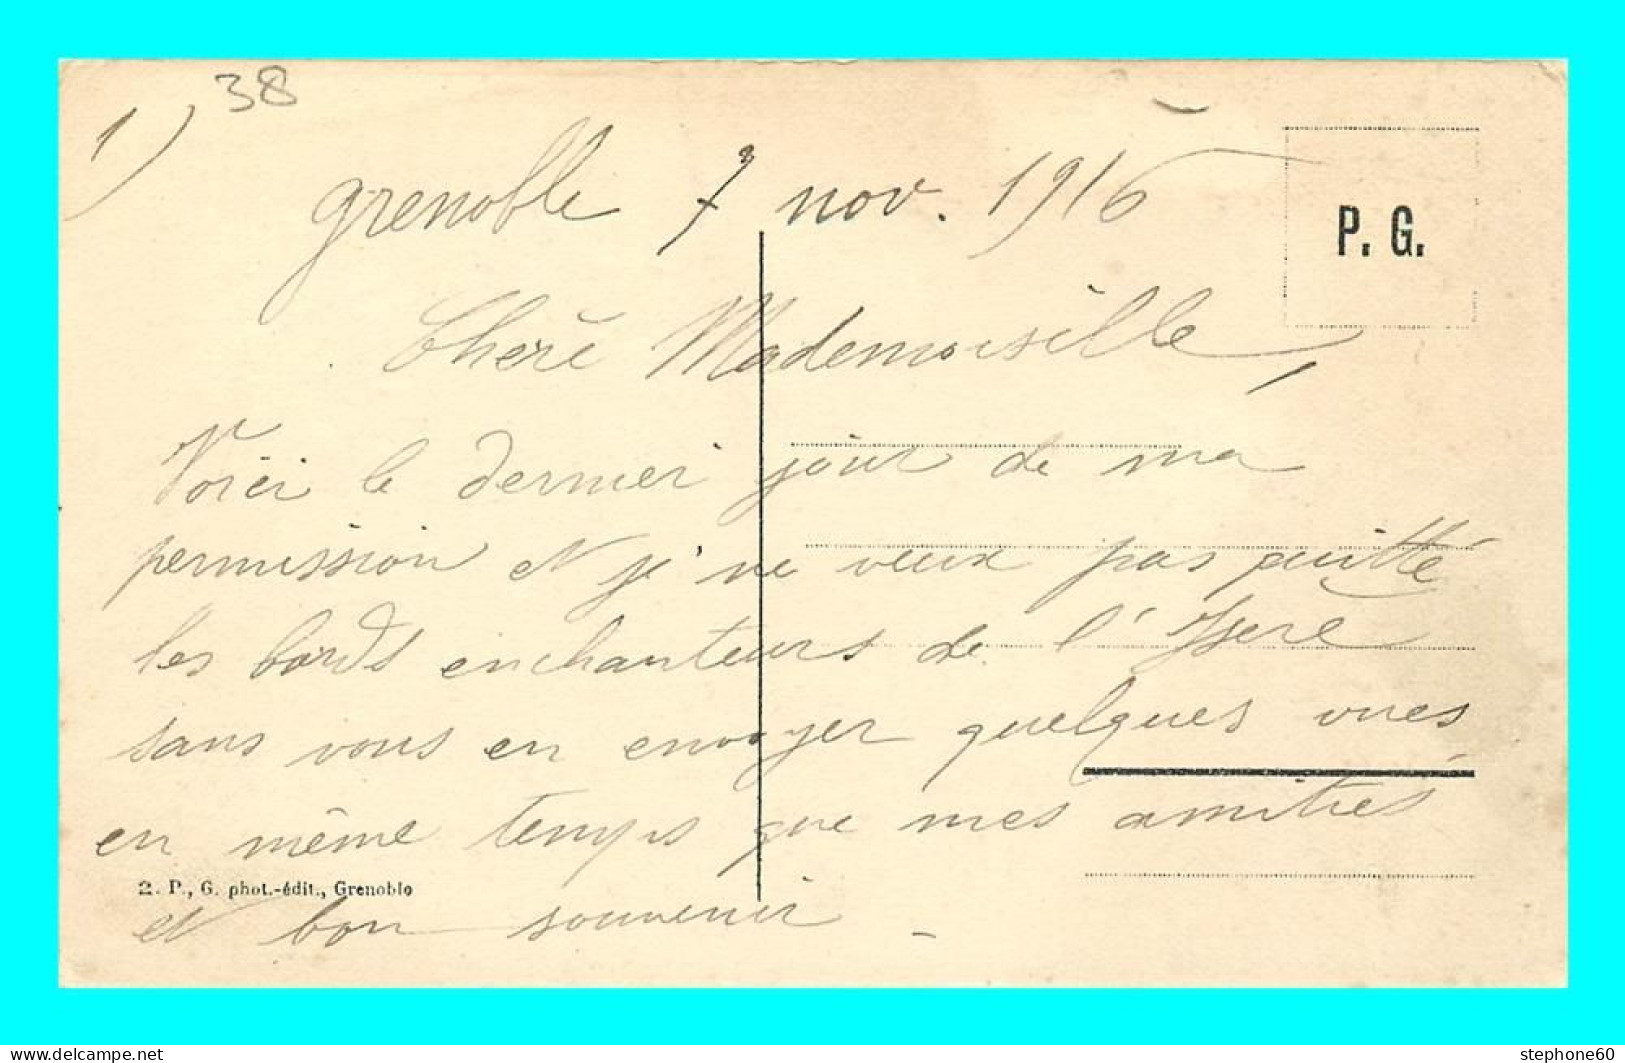 38
1)
Grenoble 7 nov. 1916
P. G.
Cherè Mademoiselle,
Voici le dernier jour de ma
permission et je ne veux pas quitté
les bords enchanteurs de l'Isere
sans vous en envoyer quelques vues
en même temps que mes amitiés
2. P., G. phot.-édit., Grenoble
et bon souvenir -
www.delcampe.net
stephone60